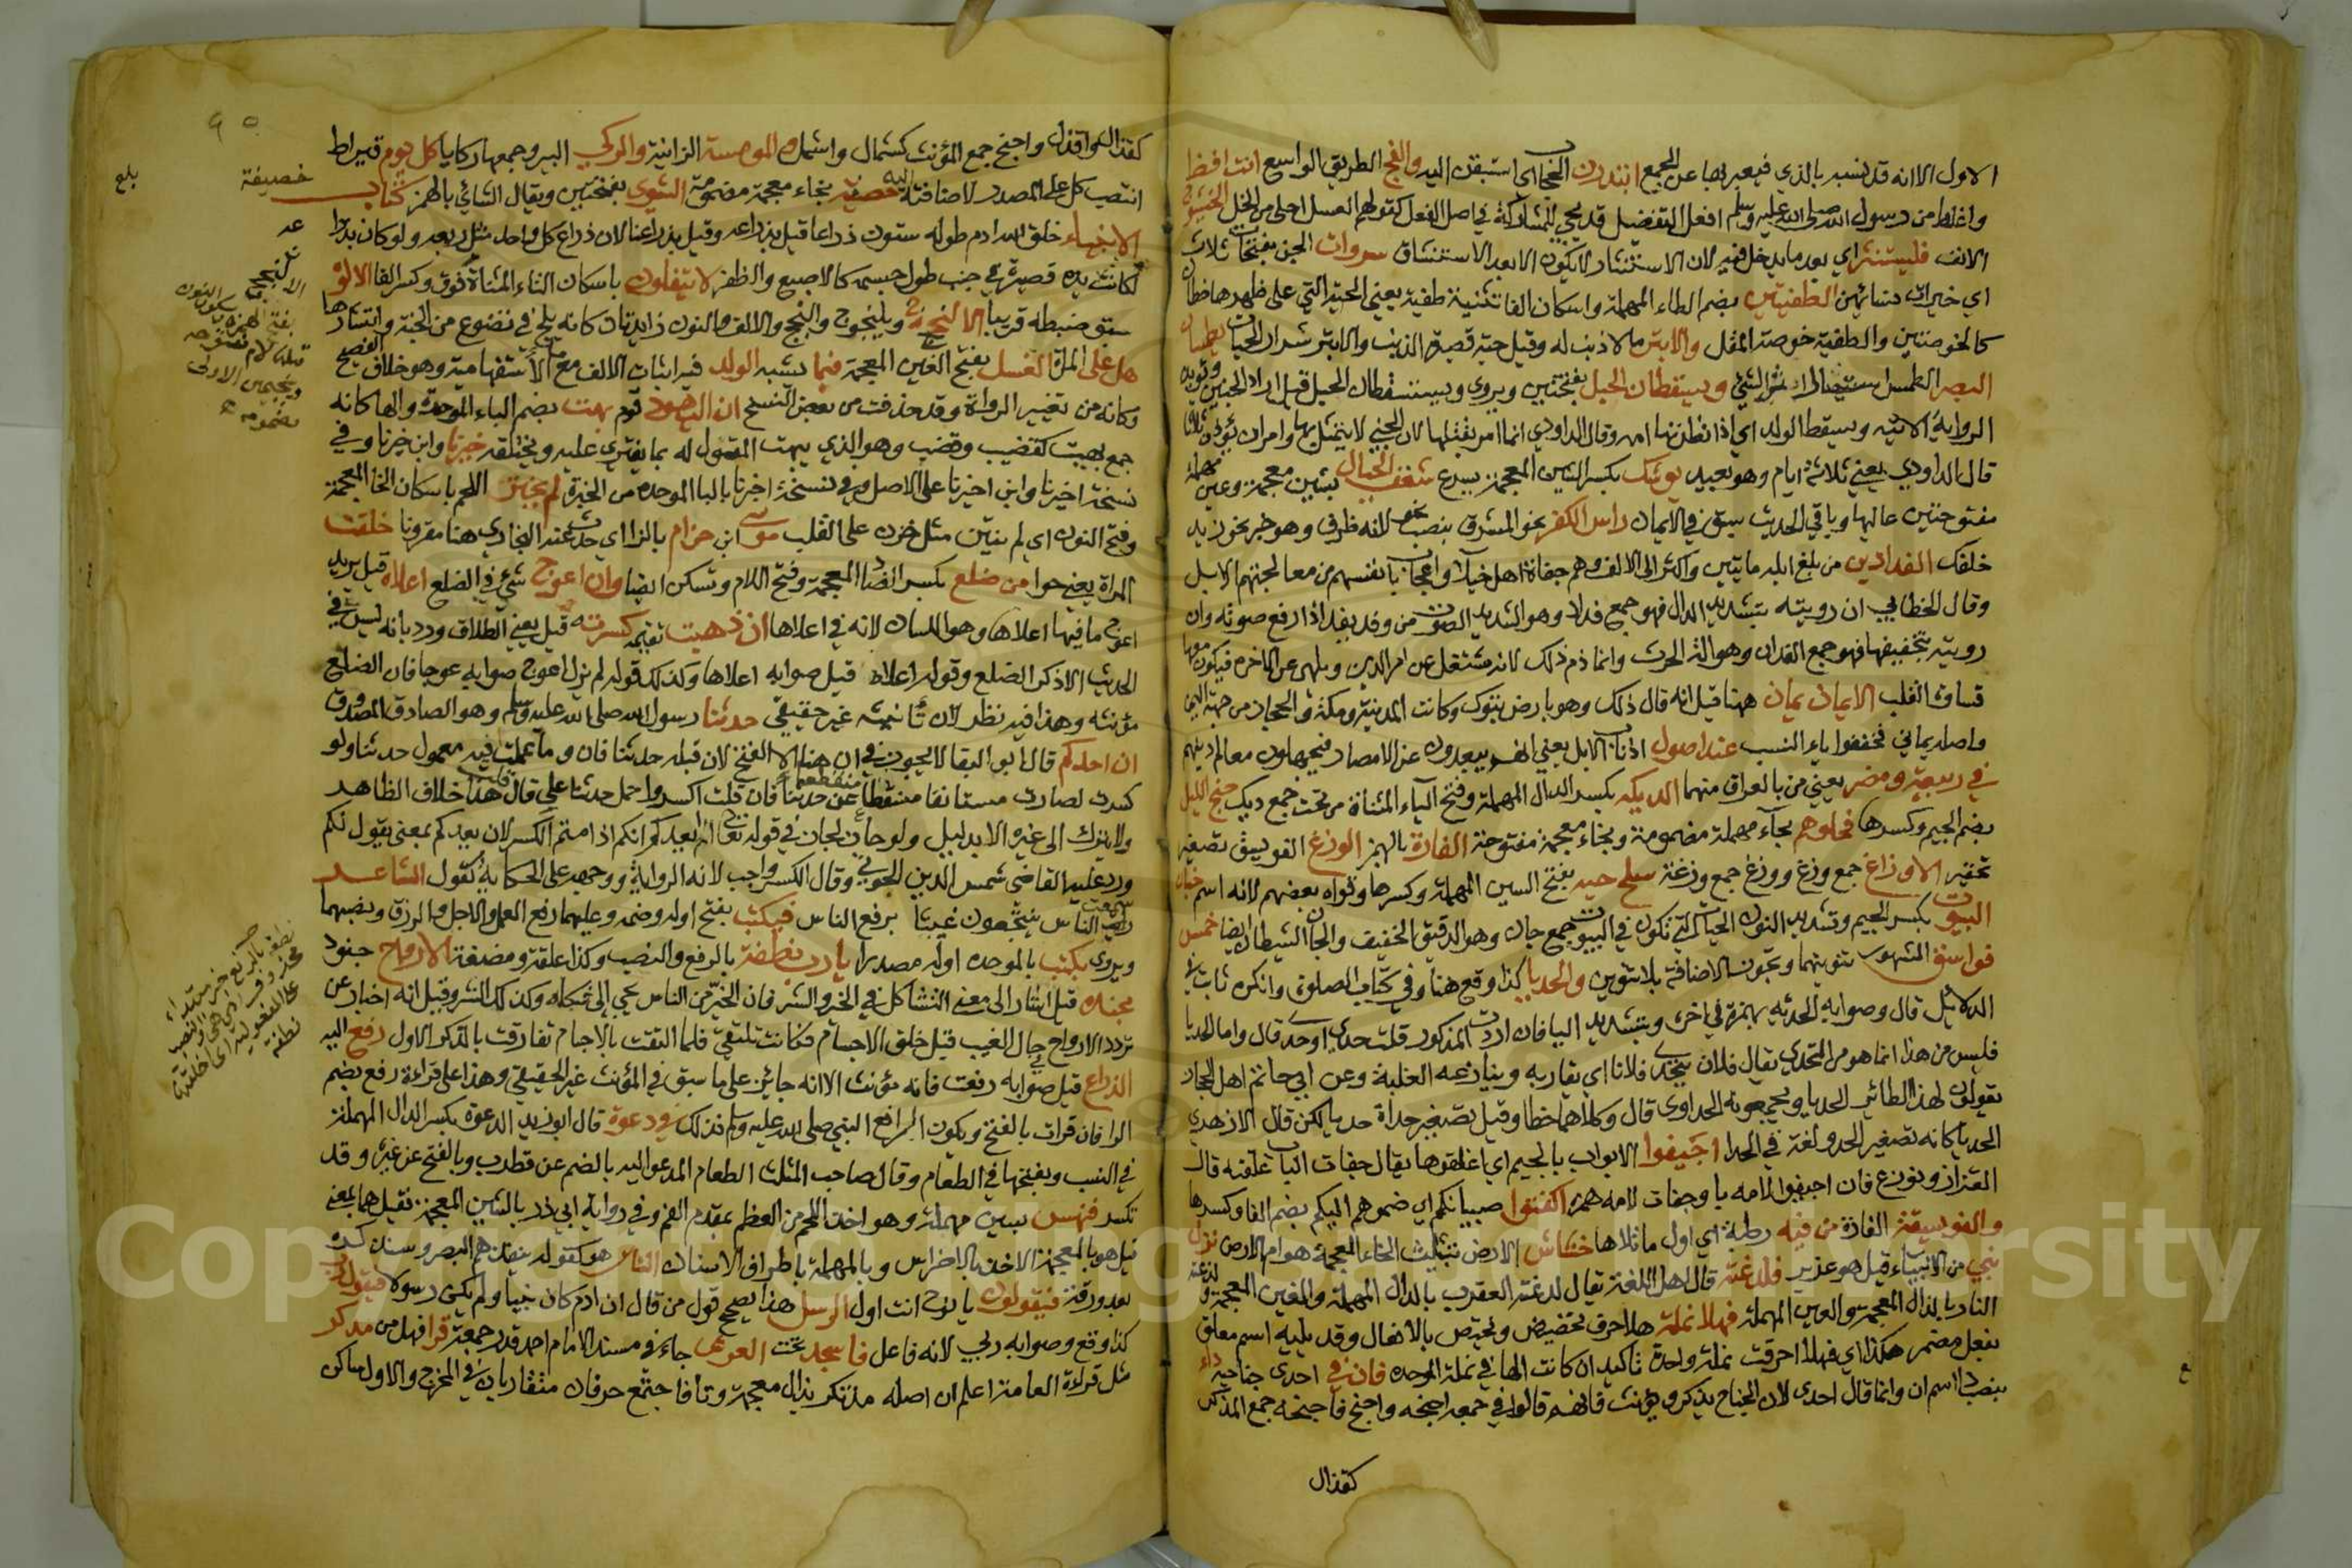 الاول الا انه قد نسبه بالذي فيعبر بها عن الجمع ابتدرن الحجاب اي استبقن اليه والفج الطريق الواسع انت افظ
واغلظ من رسول الله صلى الله عليه وسلم افعل التفضيل قد يجي للمشاركة في اصل الفعل كقولهم العسل احلى من الخل الخيشوم
الانف فليستنثر اي بعد ما يدخل فيه لان الاستنثار لا يكون الا بعد الاستنشاق سروات الجن بفتحات ثلاث
اي خيرات نسائهن الطفيتين بضم الطاء المهملة واسكان الفا تثنية طفية يعني الحية التي على ظهرها خطان
كالخوصتين والطفية خوصة المقل والابتر ما لا ذنب له وقيل حية قصيرة الذنب والابتر شرار الحيات يطمسان
البصر الطمس استيصال اثر الشئ ويستقطان الحبل بفتحتين ويروى ويستسقطان الحبل قيل اراد الجنين ويؤيده
الرواية الاتية ويسقط الولد اي اذا نظرتها امه وقال الداودي انما امر بقتلها لان الجني لا يتمثل بها وامر ان يؤذن ثلاثا
قال الداودي يعني ثلاثة ايام وهو بعيد يوشك بكسر الشين المعجمة يسرع شعف الجبال بشين معجمة وعين مهملة
مفتوحتين عاليها وباقي الحديث سبق في الايمان راس الكفر نحو المشرق بنصب نحو لانه ظرف وهو خبر نحو زيد
خلفك الفدادين من بلغ ابله مايتين واكثر الى الالف وهم جفاة اهل خيلاء واعجاب بانفسهم من معالجتهم الابل
وقال الخطابي ان رويته بتشديد الدال فهو جمع فداد وهو الشديد الصوت من فد يفد اذا رفع صوته وان
رويته بتخفيفها فهو جمع الفدان وهو الة الحرث وانما ذم ذلك لانه مشتغل عن امر الدين ويلهي عن الاخرة فيكون معها
قساوة القلب الايمان يمان ههنا قيل انه قال ذلك وهو بارض تبوك وكانت المدينة ومكة والحجاز من جهة اليمن
واصله يماني فخففوا ياء النسب عند اصول اذناب الابل يعني انهم يبعدون عن الامصار فيجهلون معالم دينهم
في ربيعة ومضر يعني من بالعراق منهما الديكة بكسر الدال المهملة وفتح الياء المثناة من تحت جمع ديك جنح الليل
بضم الجيم وكسرها فحلوهم بحاء مهملة مضمومة وبخاء معجمة مفتوحة الفارة بالهمز الوزغ الفويسق تصغير
تحقير الاوزاغ جمع وزغ ووزغ جمع وزغة سلخ حيه بفتح السين المهملة وكسرها ورواه بعضهم لانه اسم جنان
البيوت بكسر الجيم وتشديد النون الحيات التي تكون في البيوت جمع جان وهو الدقيق الخفيف والجان الشيطان ايضا خمس
فواسق المشهور تنوينهما وتجوز الاضافة بلا تنوين والحديا كذا وقع هنا وفي كتاب الصلوة وانكره ثابت في
الدلائل قال وصوابه الحدئه بهمزة في اخره وبتشديد اليا فان اردت المذكور قلت حدي اوحد قال واما الحديا
فليس من هذا انما هو من التحدي يقال فلان يتحدى فلانا اي يقاربه وينازعه الغلبة وعن ابي حاتم اهل الحجاز
يقولون لهذا الطائر الحديا ويجمعونه الحداوى قال وكلاهما خطا وقيل تصغير حداة حديا لكن قال الازهري
الحديا كانه تصغير الحدو لغة في الحدا اجيفوا الابواب بالجيم اي اغلقوها يقال جفات الباب غلقته قال
القزاز ونوزع فان اجيفوا لامه يا وجفات لامه همزة اكفتوا صبيانكم اي ضموهم اليكم بضم الفا وكسرها
والفويسقة الفارة من فيه رطبة اي اول ما تلاها خشاش الارض بتثليث الخاء المعجمة هوام الارض نزل
نبي من الانبياء قيل هو عزير فلدغته قال اهل اللغة يقال لدغته العقرب بالدال المهملة والغين المعجمة ولذعته
النار بالذال المعجمة والعين المهملة فهلا نملة هلا حرف تحضيض وتختص بالافعال وقد يليه اسم معلق
بفعل مضمر هكذا اي فهلا احرقت نملة واحدة تاكيد ان كانت الها في نملة للوحده فان في احدى جناحيه داء
بنصب داء اسم ان وانما قال احدى لان الجناح يذكر ويؤنث فانهم قالوا في جمعه اجنحه واجنح فاجنحه جمع المذكر
كقذال
كقذال واقذلة واجنح جمع المؤنث كشمال واشمل المومسة الزانية والركي البير وجمعها ركايا كل يوم قيراط
انتصب كل على المصدر لاضافته اليه خصفة بخاء معجمة مضمومة الشنوي بفتحتين ويقال الشنائي بالهمز كتاب
الانبياء خلق الله ادم طوله ستون ذراعا قيل بذراعه وقيل بذراعنا لان ذراع كل واحد مثل ربعه ولو كان بذراعه
لكانت يده قصيرة في جنب طول جسمه كالاصبع والظفر لا يتفلون باسكان التاء المثناة فوق وكسر الفا الالوة
سبق ضبطه قريبا الالنجوج ويلنجوج والنجج والالف والنون زايدتان كانه يلج في تضوع من الجنة وانتشارها
هل على المراة الغسل بفتح الغين المعجمة فبما يشبه الولد فيه اثبات الالف مع ما الاستفهامية وهو خلاف الفصيح
وكانه من تغيير الرواة وقد حذفت من بعض النسخ ان اليهود قوم بهت بضم الباء الموحدة والها كانه
جمع بهيت كقضيب وقضب وهو الذي يبهت المقول له بما يفتري عليه ويختلقه خيرنا وابن خيرنا وفي
نسخة اخيرنا وابن اخيرنا على الاصل وفي نسخة اخبرنا بالبا الموحده من الخبرة لم يخنز اللحم باسكان الخا المعجمة
وفتح النون اي لم ينتن مثل خزن على القلب موسى ابن حزام بالزا اي حدث عنه البخاري هنا مقرونا خلقت
المراة يعني حوا من ضلع بكسر الضاد المعجمة وفتح اللام وتسكن ايضا وان اعوج شئ في الضلع اعلاه قيل يريد
اعوج ما فيها اعلاها وهو اللسان لانه في اعلاها ان ذهبت تقيمه كسرته قيل يعني الطلاق ورد بانه ليس في
الحديث الا ذكر الضلع وقوله اعلاه قيل صوابه اعلاها وكذلك قوله لم يزل اعوج صوابه عوجا فان الضلع
مؤنثه وهذا فيه نظر لان تانيثه غير حقيقي حدثنا رسول الله صلى الله عليه وسلم وهو الصادق المصدوق
ان احدكم قال ابو البقا لا يجوز في ان هنا الا الفتح لان قبله حدثنا فان وما عملت فيه معمول حدثنا ولو
كسرت لصارت مستانفا منقطعا عن حدثنا فان قلت اكسر واحمل حدثنا على قال قلت هذا خلاف الظاهر
ولا يترك الى غيره الا بدليل ولو جاز لجاز في قوله تعالى ايعدكم انكم اذا متم الكسر لان يعدكم بمعنى يقول لكم
ورد عليه القاضي شمس الدين الخوئي وقال الكسر واجب لانه الرواية ووجهه على الحكاية كقول الشاعر
سمعت الناس ينتجعون غيثا برفع الناس فيكتب بفتح اوله وضمه وعليهما رفع العمل والاجل والرزق ونصبهما
ويروى بكتب بالموحده اوله مصدرا يا رب نطفة بالرفع والنصب وكذا علقة ومضغة الارواح جنود
مجندة قيل اشار الى معنى التشاكل في الخير والشر فان الخير من الناس يحن الى شكله وكذلك الشر وقيل انه اخبار عن
تردد الارواح حال الغيب قبل خلق الاجسام فكانت تلتقي فلما التقت بالاجسام تفارقت بالذكر الاول رفع اليه
الذراع قيل صوابه رفعت فانه مؤنث الا انه جائز على ما سبق في المؤنث غير الحقيقي وهذا على قراءة رفع بضم
الرا فان قرات بالفتح ويكون الرافع النبي صلى الله عليه وسلم فذلك ودعوة قال ابو زيد الدعوة بكسر الدال المهملة
في النسب وبفتحها في الطعام وقال صاحب المثلث الطعام المدعو اليه بالضم عن قطرب وبالفتح عن غيره وقد
تكسر فنهس بسين مهملة وهو اخذ اللحم من العظم بمقدم الفم وفي رواية ابي ذر بالشين المعجمة فقيل هما بمعنى
قيل هو بالمعجمة الاخذ بالاضراس وبالمهملة باطراف الاسنان الناس هو كقوله ينفذهم البصر وسندكره
بعد ورقة فيقولون يا نوح انت اول الرسل هذا يصحح قول من قال ان ادم كان نبيا ولم يكن رسولا فيقول ربي
كذا وقع وصوابه ربي لانه فاعل فاسجد تحت العرش جاء في مسند الامام احمد قدر جمعة قرا فهل من مدكر
مثل قراءة العامة اعلم ان اصله مذتكر بذال معجمة وتا فاجتمع حرفان متقاربان في المخرج والاول ساكن
خصيفة
بلغ
الالنجج
بفتح الهمزة